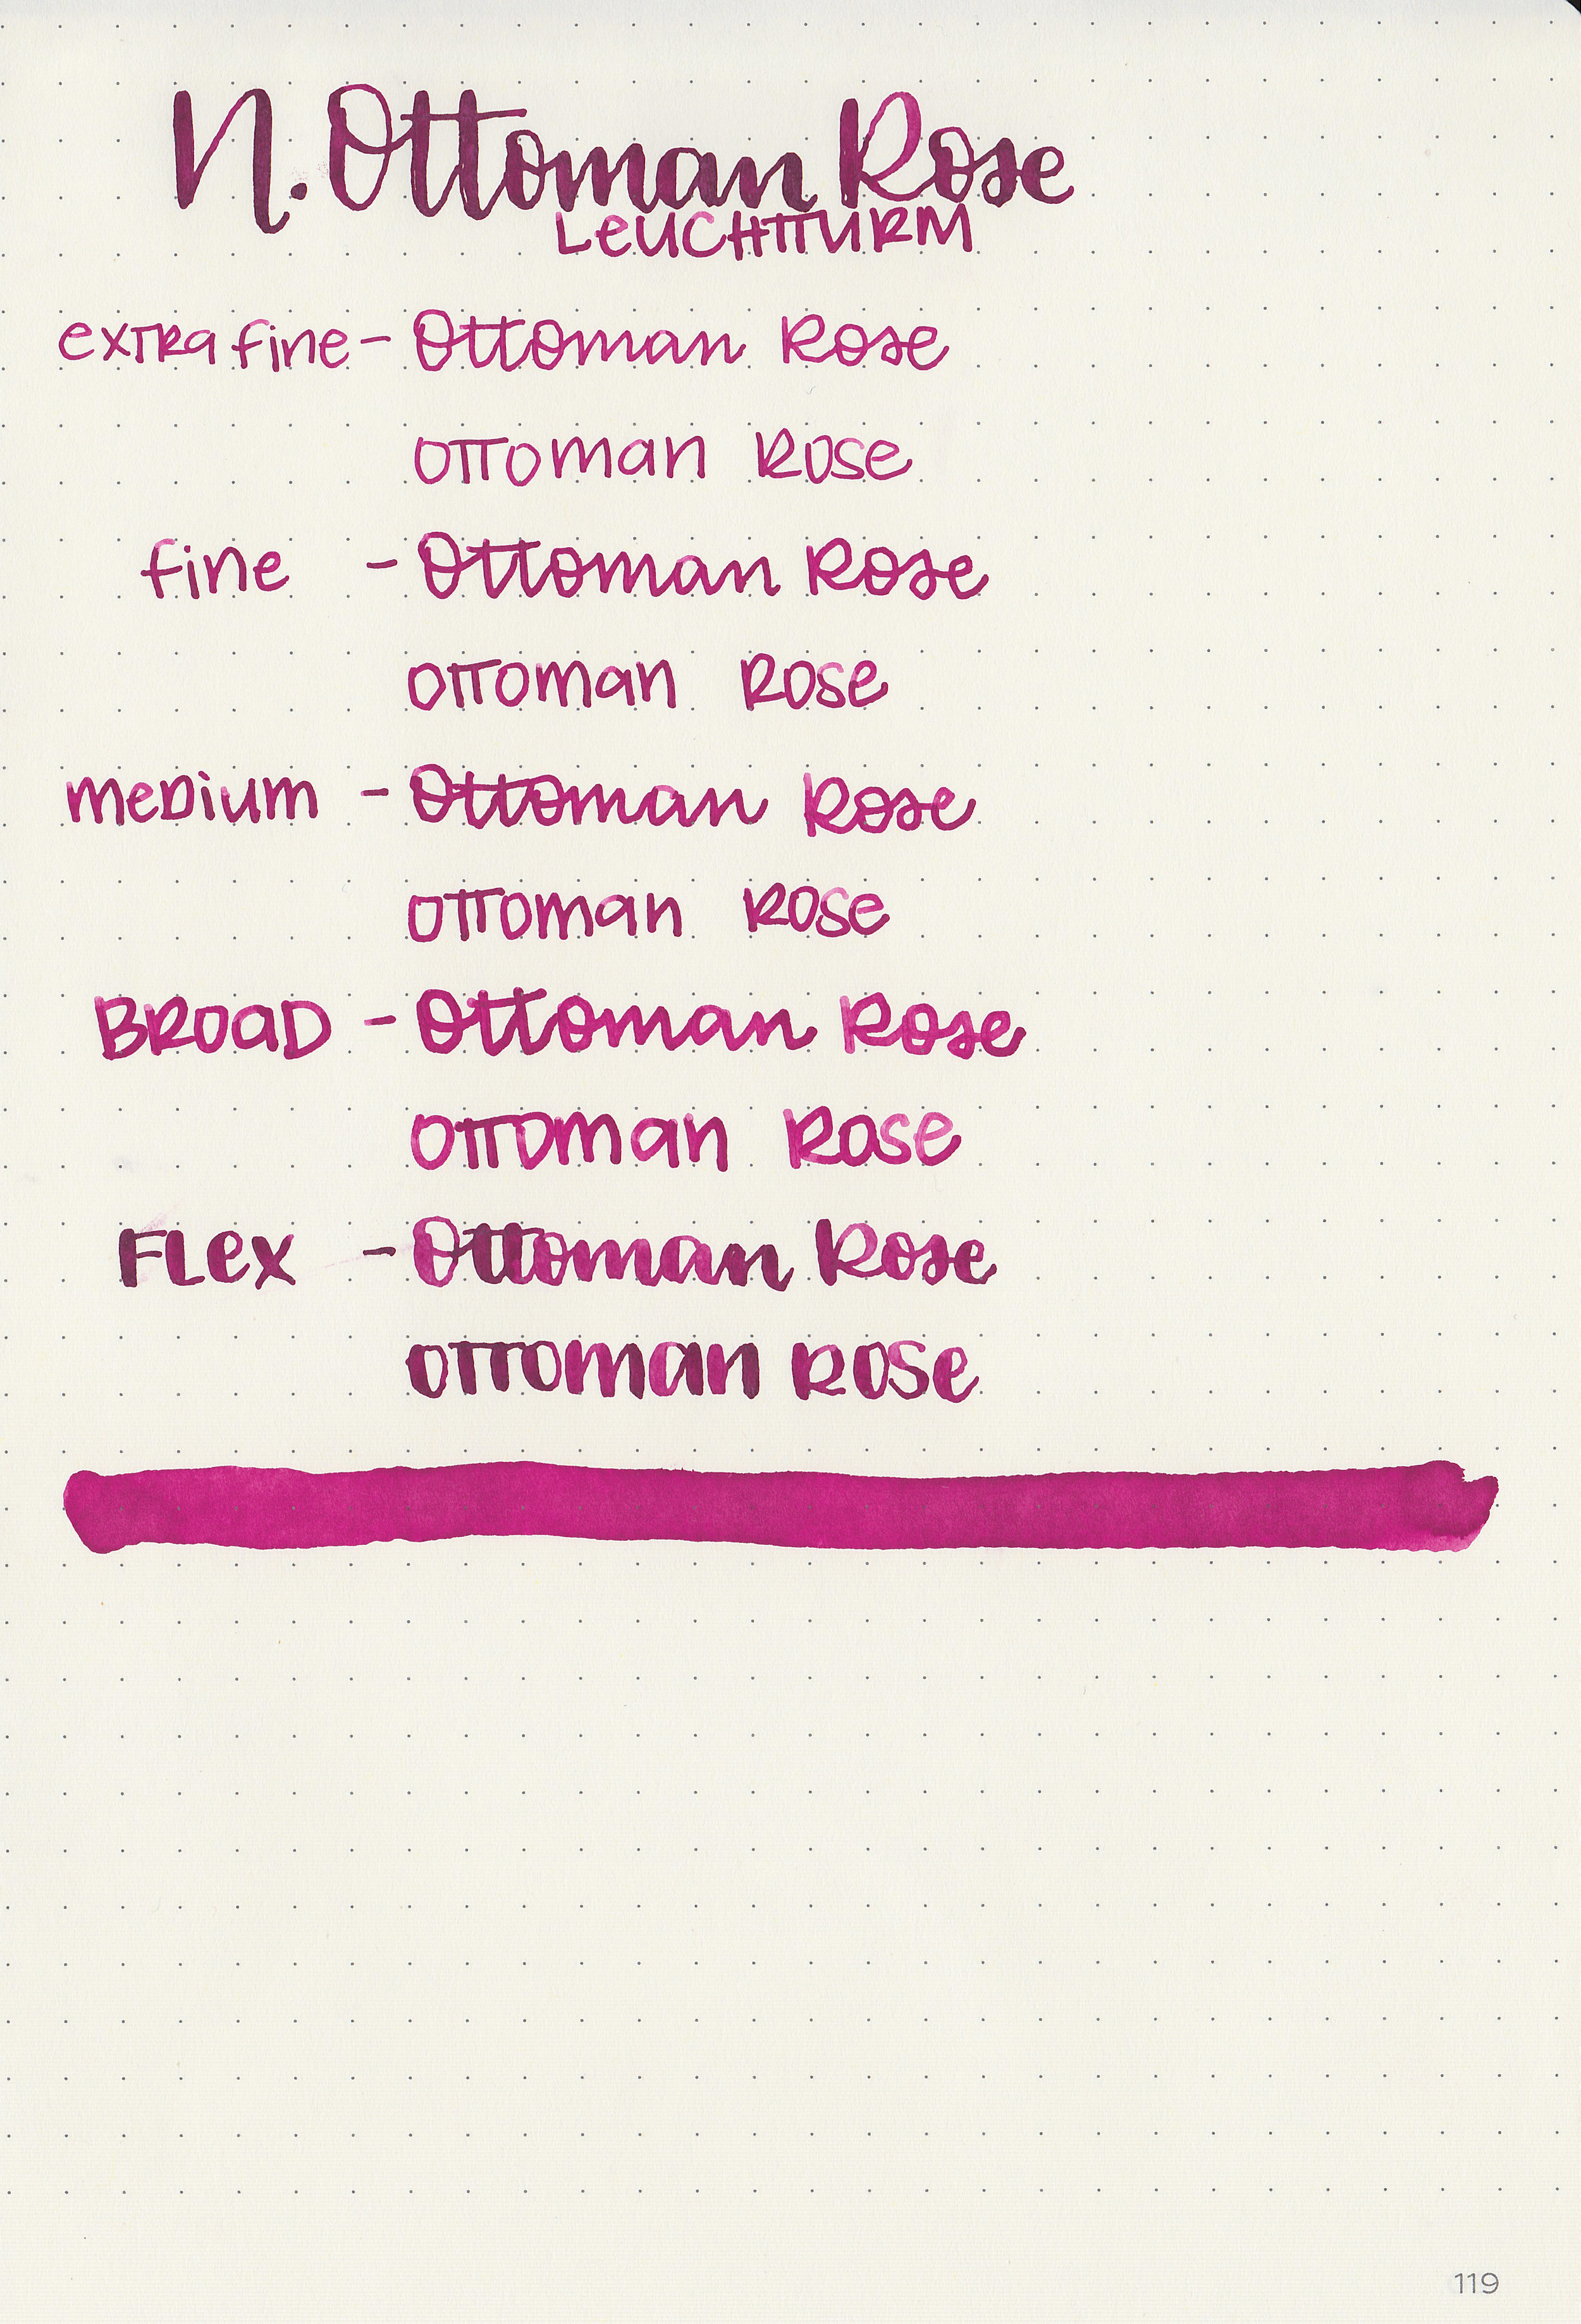 N. Ottoman Rose
LeUCHTTURM
extra fine - Ottoman Rose
Ottoman Rose
fine - Ottoman Rose
Ottoman Rose
medium - Ottoman Rose
Ottoman Rose
Broad - Ottoman Rose
Ottoman Rose
FLex - Ottoman Rose
Ottoman Rose
119